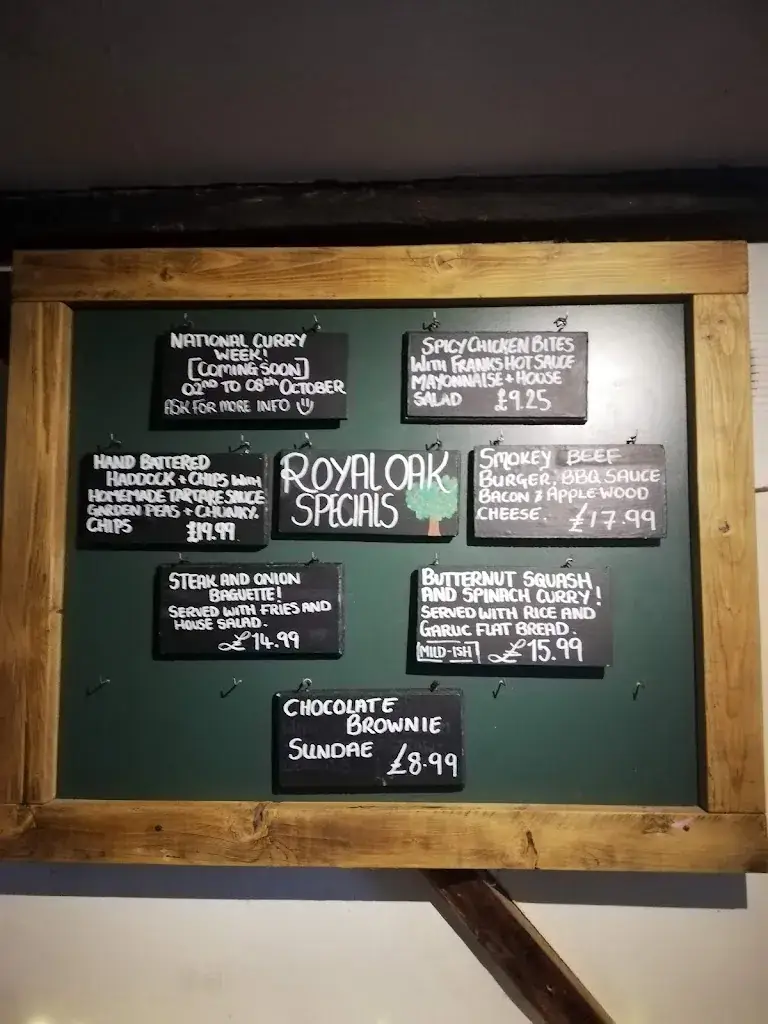 NATIONAL CURRY
WEEK!
[COMING SOON]
02ND TO 08th OCTOBER
ASK FOR MORE INFO
SPICY CHICKEN BITES
WITH FRANKS HOT SAUCE
MAYONNAISE + HOUSE
SALAD £9.25
HAND BATTERED
HADDOCK + CHIPS WITH
HOMEMADE TARTARE SAUCE
GARDEN PEAS + CHUNKY
CHIPS £19.99
ROYAL OAK
SPECIALS
SMOKEY BEEF
BURGER, BBQ SAUCE
BACON & APPLEWOOD
CHEESE. £17.99
STEAK AND ONION
BAGUETTE!
SERVED WITH FRIES AND
HOUSE SALAD.
£14.99
BUTTERNUT SQUASH
AND SPINACH CURRY!
SERVED WITH RICE AND
GARLIC FLAT BREAD.
[MILD-ISH] £15.99
CHOCOLATE
BROWNIE
SUNDAE £8.99